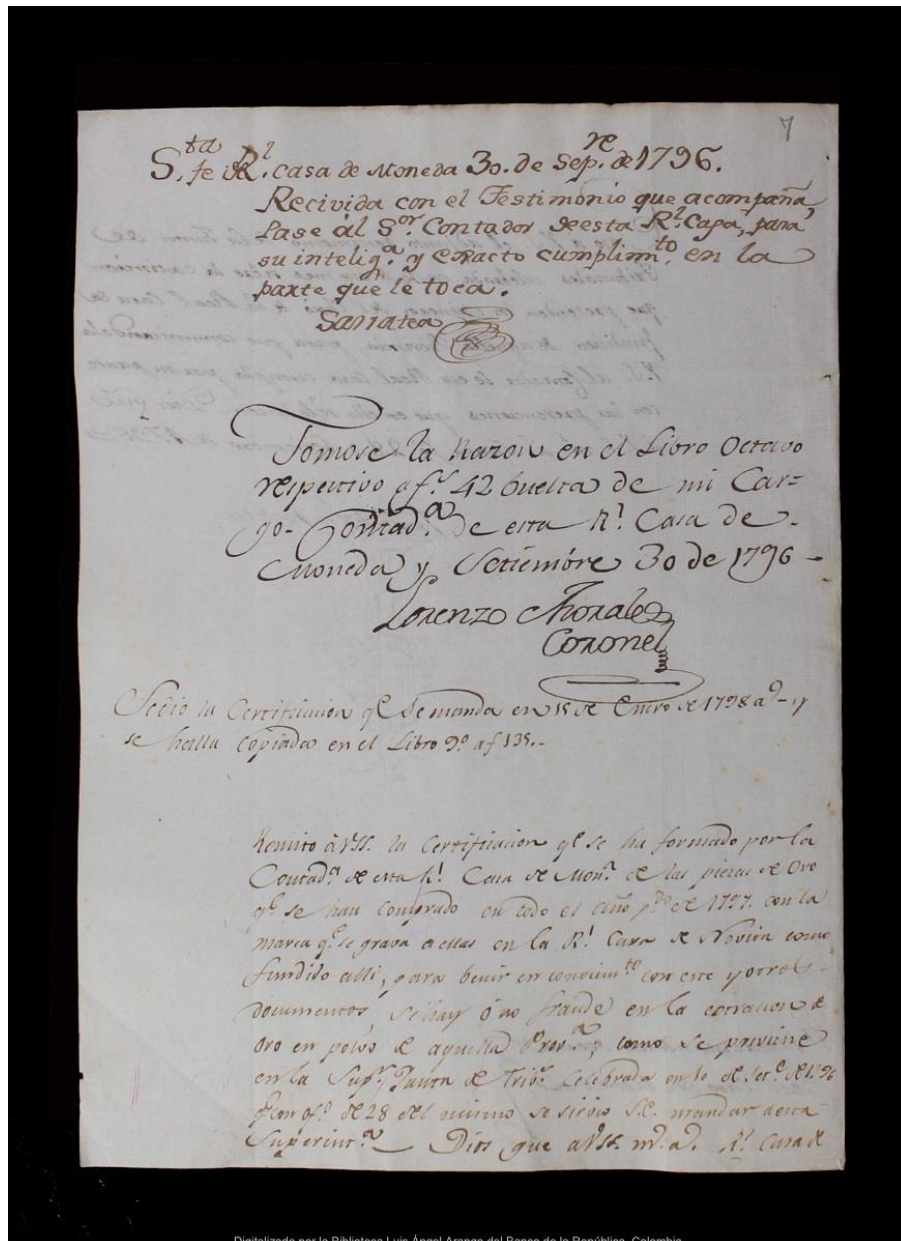 7
S.ta fe Rl. casa de Moneda 30. de Sepre. de 1796.
Recivida con el Testimonio que acompaña,
pase ál Sor. Contador de esta Rl. Casa, para
su inteliga. y exacto cumplimto. en la
parte que le toca.
Sarratea
Tomose la Razon en el Libro Octavo
respectivo a fs. 42 buelta de mi Car-
go- Contada. de esta Rl. Casa de
Moneda y Setiembre 30 de 1796-
Lorenzo Morales
Coronel
Sedio la Certificacion qe. se manda en 15 de Enero de 1798 as- y
se halla copiada en el Libro 9o. a f 135.-
Remito à VSS. la Certificacion qe. se ha formado por la
Contada. de esta Rl. Casa de Mona. de las piezas de Oro
qe. se han comprado en todo el año pdo de 1797. con la
marca qe. se grava a ellas en la Rl. Casa de Novita como
fundido alli, para venir en conocimto. con este y otros
documentos, si hay ó no fraude en la extraccion de
oro en polvo de aquella Prova., como se previene
en la Supr. Junta de Tribs. celebrada en 10 de Sete. de 1796
qe. con ofo. de 28 del mismo se sirvio S.E. mandar a esta
Superinta. — Dios gue a VSS. ms. as. Rl. Casa de
Digitalizado por la Biblioteca Luis Ángel Arango del Banco de la República, Colombia